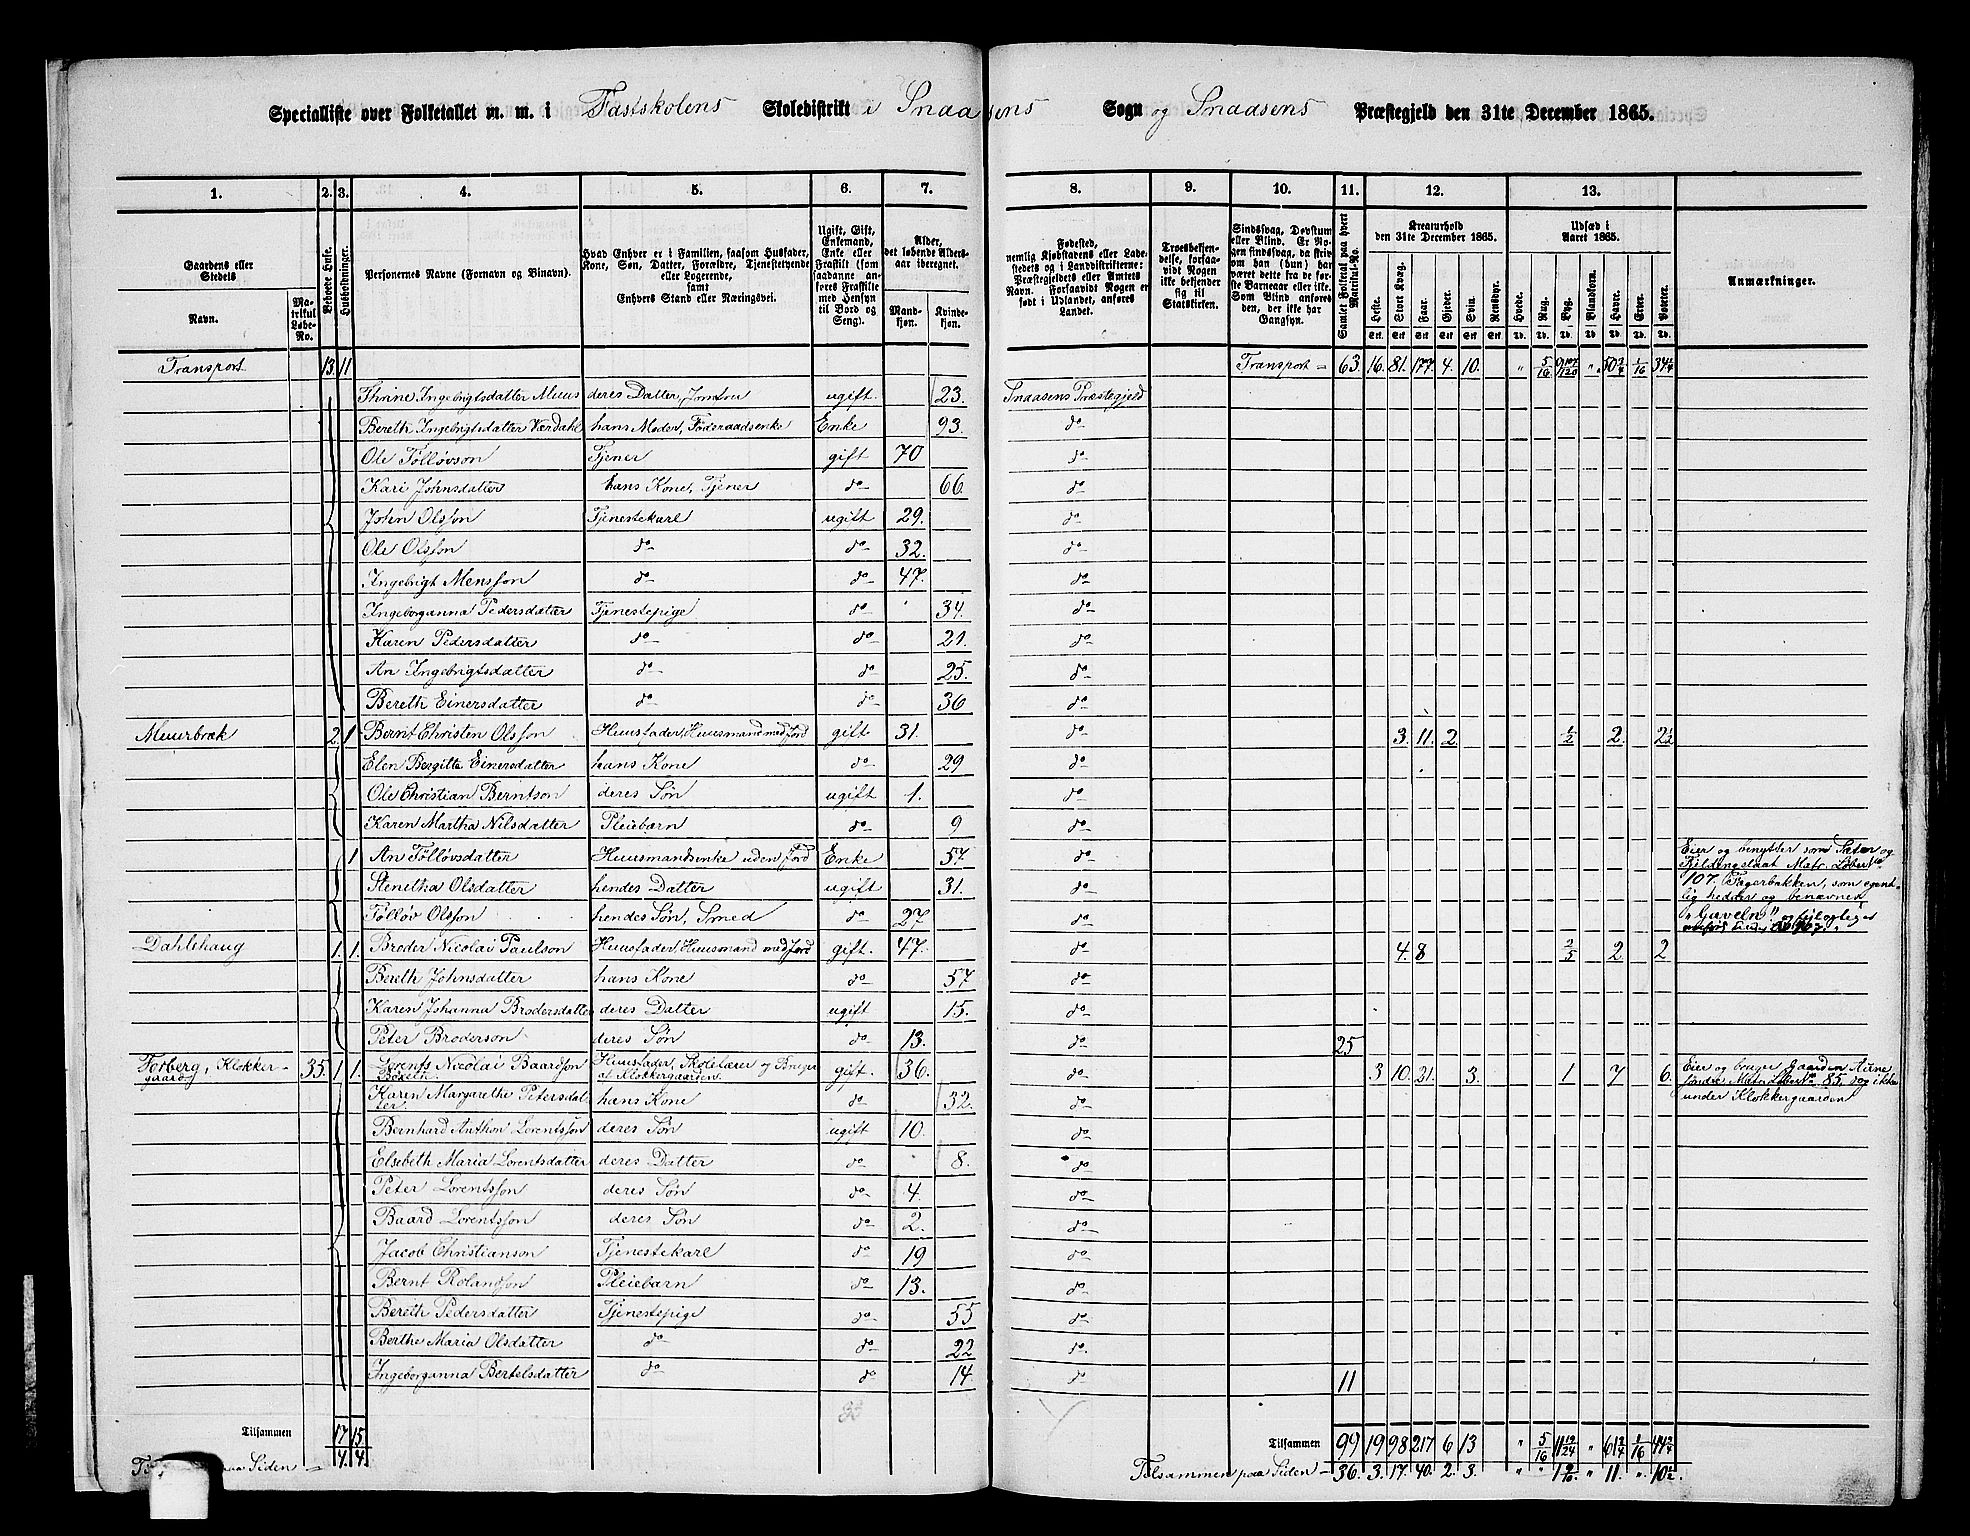 Specialliste over Folketallet m. m. i Fastskolens Skoledistrikt i Snaasens Sogn og Snaasens Præstegjeld den 31te December 1865.
1. 2. 3. 4. 5. 6. 7. 8. 9. 10. 11. 12. 13.
Gaardens eller Stedets
Navn.
Matrikul Løbe-No.
Beboede Huse.
Husholdninger.
Personernes Navne (Fornavn og Binavn).
Hvad Enhver er i Familien, saasom Husfader, Kone, Søn, Datter, Forældre, Tjenestetyende eller Logerende, samt Enhvers Stand eller Næringsvei.
Ugift, Gift, Enkemand, Enke eller Fraskilt (som saadanne anføres Fraskilte med Hensyn til Bord og Seng).
Alder, det løbende Aldersaar iberegnet.
Mandkjøn. Kvindekjøn.
Fødested, nemlig Kjøbstadens eller Ladestedets og i Landdistrikterne: Præstegjeldets eller Amtets Navn. Forsaavidt Nogen er født i Udlandet, anføres Landet.
Troesbekjendelse, forsaavidt Nogen ikke bekjender sig til Statskirken.
Sindssvag, Døvstum eller Blind. Er Nogen sindssvag, da skrives om han (hun) har været dette fra de første Barneaar eller ikke. Som Blind anføres den, der ikke har Gangsyn.
Samlet Folketal paa hvert Matrikul-No.
Kreaturhold den 31te December 1865.
Heste. Stort Kvæg. Faar. Gjeder. Svin. Rensdyr.
Udsæd i Aaret 1865.
Hvede. Rug. Byg. Blandkorn. Havre. Erter. Poteter.
Anmærkninger.
Transport 13. 11 Transport = 63. 16. 81. 177. 4. 10. " 5/16 9 107/120 " 50 3/4 1/16 34 1/4
Thrine Ingebrigtsdatter Muus deres Datter, Jomfru ugift. 23. Snaasens Præstegjeld
Bereth Ingebrigtsdatter Værdahl hans Moder, Føderaadsenke Enke 93. do
Ole Følløvson Tjener gift 70 do
Kari Johnsdatter hans Kone, Tjener do 66. do
Joten Olsson Tjenestekarl ugift 29. do
Ole Olsson do do 32. do
Ingebrigt Mensson do do 47. do
Ingeborganna Pedersdatter Tjenestepige do 34. do
Karen Pedersdatter do do 21. do
An Ingebrigtsdatter do do 25. do
Bereth Einersdatter do do 36 do
Muurbræk 2. 1 Bernt Christen Olsson Huusfader, Huusmand med Jord gift 31. do 3. 11. 2. 1/2 2. 2 1/2
Elen Bergitta Einersdatter hans Kone do 29 do
Ole Christian Berntson deres Søn ugift 1. do
Karen Martha Nilsdatter Pleiebarn do 9 do
1 An Følløvsdatter Huusmandsenke uden Jord Enke 57. do Eier og benytter som Sæter og
Stenetha Olsdatter hendes Datter ugift 31. do Matr. Løbe No
Følløv Olsson hendes Søn, Smed do 27 do 107. Fagerbakken, som egent-
lig hedder og benævnes
"Gaveln"
Dahlehaug 1. 1. Broder Nicolai Paulson Huusfader, Huusmand med Jord gift. 47. do 4. 8 2/5 2. 2
Bereth Johnsdatter hans Kone do 57 do
Karen Johanna Brodersdatter deres Datter ugift 15. do
Peter Broderson deres Søn do 13. do 25
Forberg, Klokkergaard 35. 1 1. Lorents Nicolai Baardson Huusfader, Skolelærer og Bruger af Klokkergaarden. gift. 36. do 3 10. 21. 3. 1 7 6. Eier og bruger Gaarden Aune
søndre Matr. Løbe No 85. og ikke
under Klokkergaarden
Karen Margarethe Petersdatter hans Kone do 32. do
Bernhard Anthon Lorentsson deres Søn ugift 10. do
Elsebeth Maria Lorentsdatter deres Datter do 8. do
Peter Lorentsson deres Søn do 4. do
Baard Lorentsson deres Søn do 2. do
Jacob Christianson Tjenestekarl do 19 do
Bernt Rolandson Pleiebarn do 13. do
Bereth Pedersdatter Tjenestepige do 55 do
Berthe Maria Olsdatter do do 22 do
Ingeborganna Bertelsdatter do do 14. do 11
33
Tilsammen 17 15 Tilsammen 99 19 98 217 6 13 " 5/16 11 19/24 " 61 3/4 1/16 44 3/4
paa Siden = 4. 4. Tilsammen paa Siden = 36. 3. 17. 40. 2. 3. " " 1 9/10 " 11. " 10 1/2.